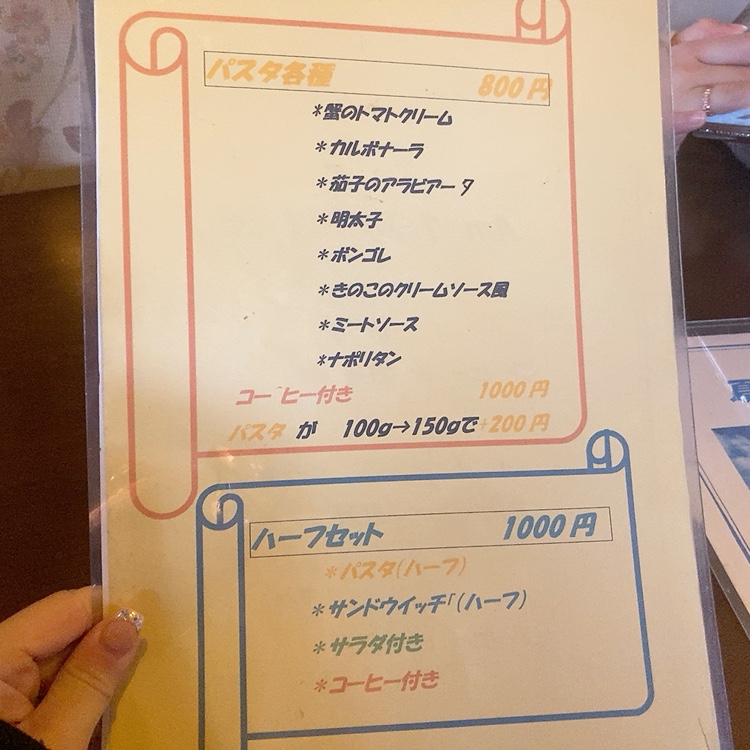 パスタ各種 800円
*蟹のトマトクリーム
*カルボナーラ
*茄子のアラビアータ
*明太子
*ボンゴレ
*きのこのクリームソース風
*ミートソース
*ナポリタン
コーヒー付き 1000円
パスタ が 100g→150gで+200円
ハーフセット 1000円
*パスタ(ハーフ)
*サンドウイッチ「(ハーフ)
*サラダ付き
*コーヒー付き